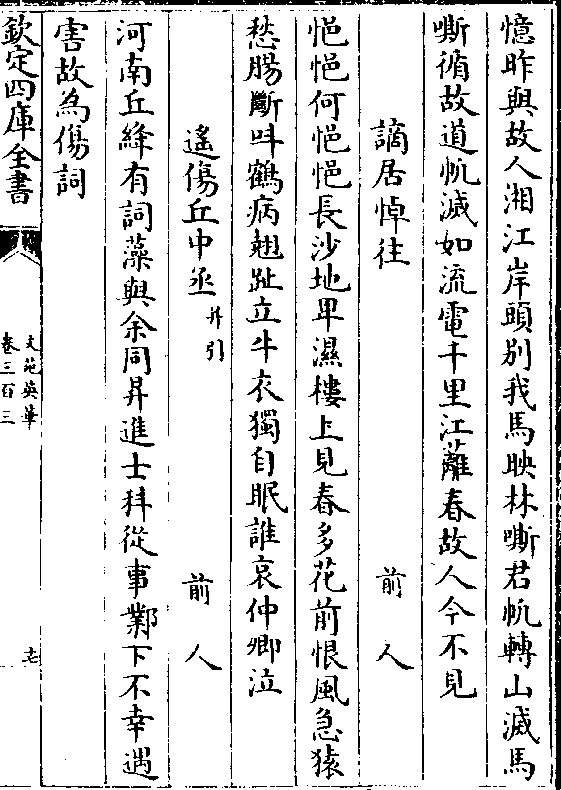 憶昨與故人湘江岸頭别我馬映林嘶君帆轉山滅馬
嘶循故道帆滅如流電千里江蘺春故人今不見
謫居悼往　前人
悒悒何悒悒長沙地卑濕樓上見春多花前恨風急猿
愁腸斷呌鶴病翹趾立牛衣獨自眠誰哀仲卿泣
遙傷丘中丞并引　前人
河南丘絳有詞藻與余同昇進士科從事鄴下不幸遇
害故為傷詞
欽定四庫全書
文苑英華
卷三百三
十七